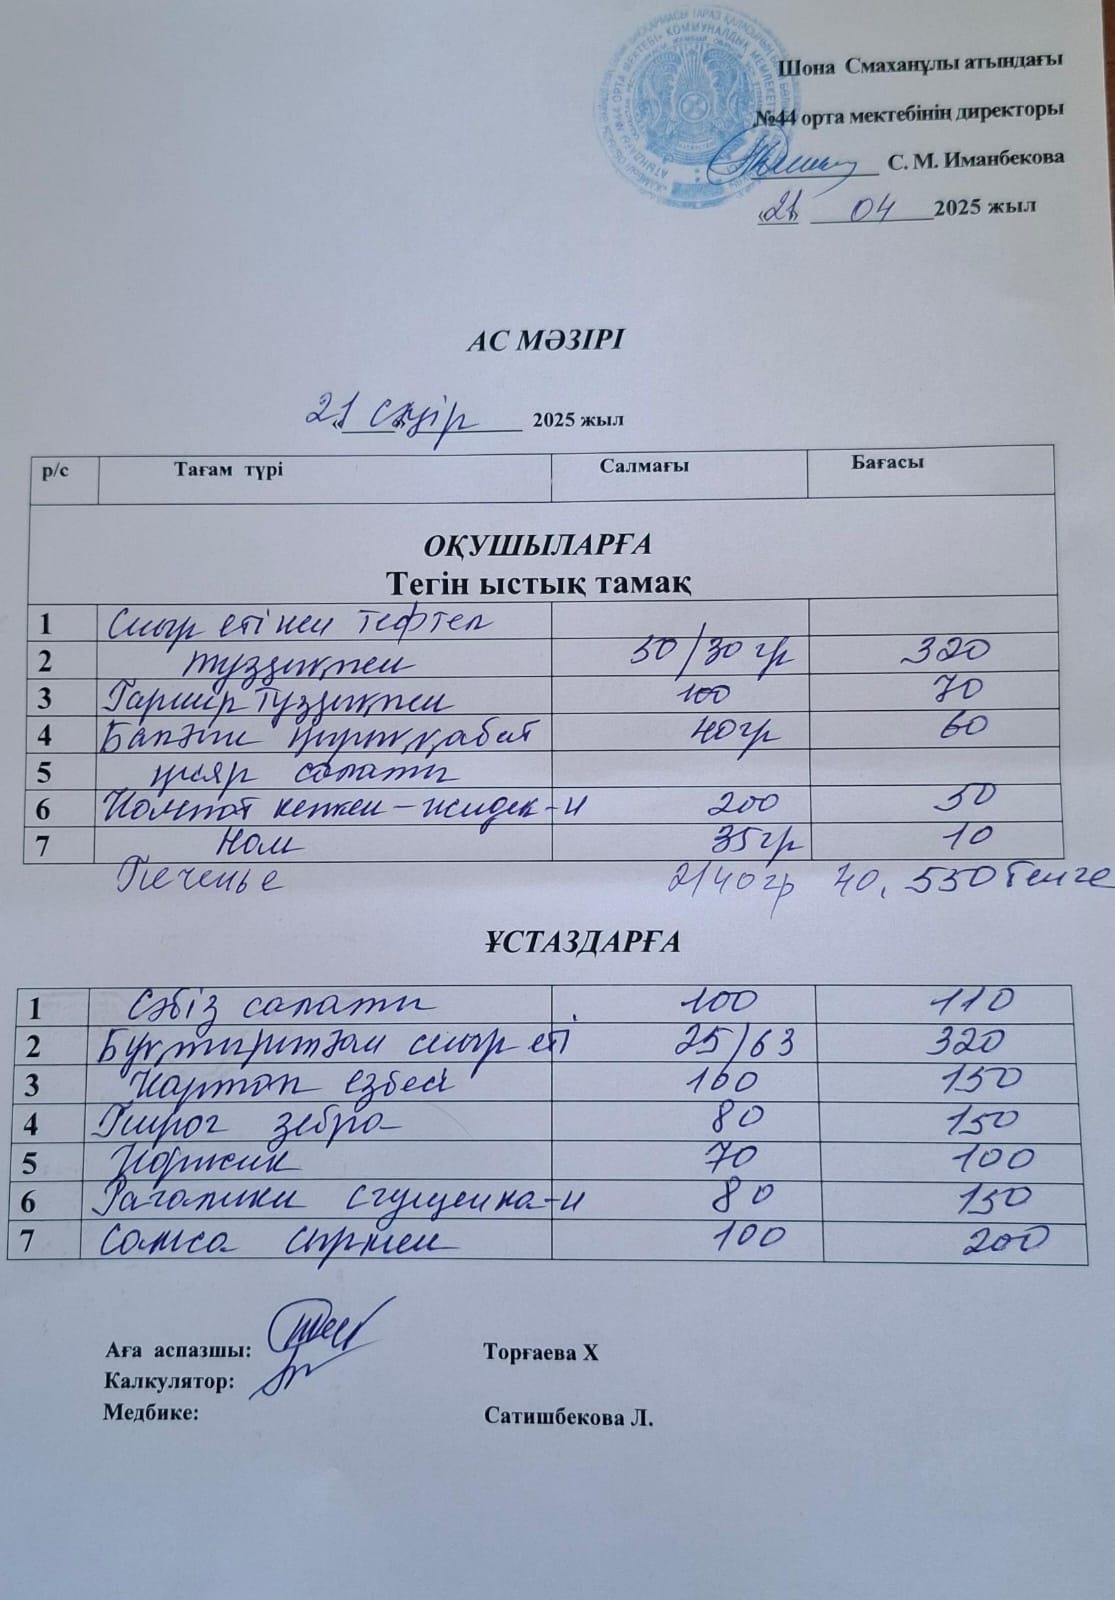 Шона Смаханұлы атындағы
№44 орта мектебінің директоры
С. М. Иманбекова
«21» 04 2025 жыл
АС МӘЗІРІ
21 сәуір 2025 жыл
р/с Тағам түрі Салмағы Бағасы
ОҚУШЫЛАРҒА
Тегін ыстық тамақ
1 Сиыр етінен тефтел
2 тұздықпен 50/30 гр 320
3 Гарнир тұздықпен 100 70
4 Балғын қырыққабат 40гр 60
5 қияр салаты
6 Компот кепкен-жидек-н 200 50
7 Нан 35гр 10
Печенье 2/40гр 40, 550 тенге
ҰСТАЗДАРҒА
1 Сәбіз салаты 100 110
2 Бұқтырылған сиыр еті 25/63 320
3 Картоп езбесі 100 150
4 Пирог зебра 80 150
5 Коржик 70 100
6 Рагалики сгущенка-н 80 150
7 Самса сырмен 100 200
Аға аспазшы: Торғаева Х
Калкулятор:
Медбике: Сатишбекова Л.